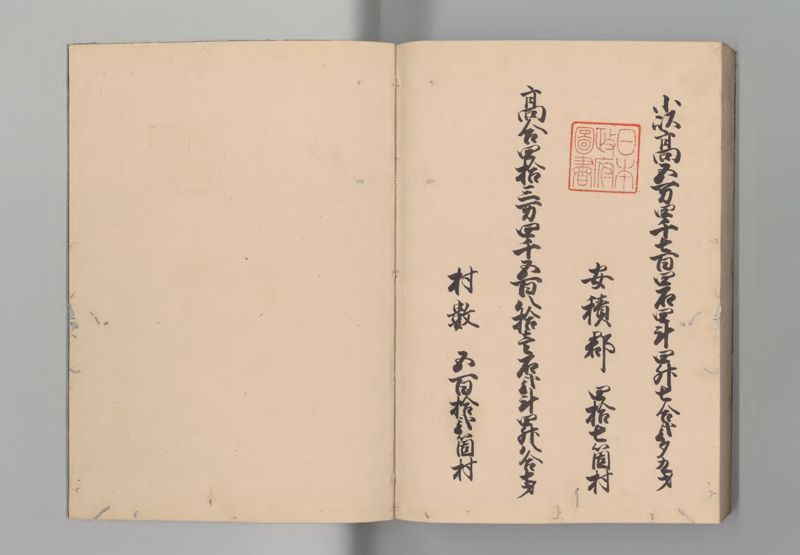 小以高五万四千七百四石四斗四升七合弐夕五才
安積郡 四拾七箇村
日本
政府
圖書
高合四拾三万四千五百八拾壱石弐斗四升八合七才
村数 五百拾弐箇村